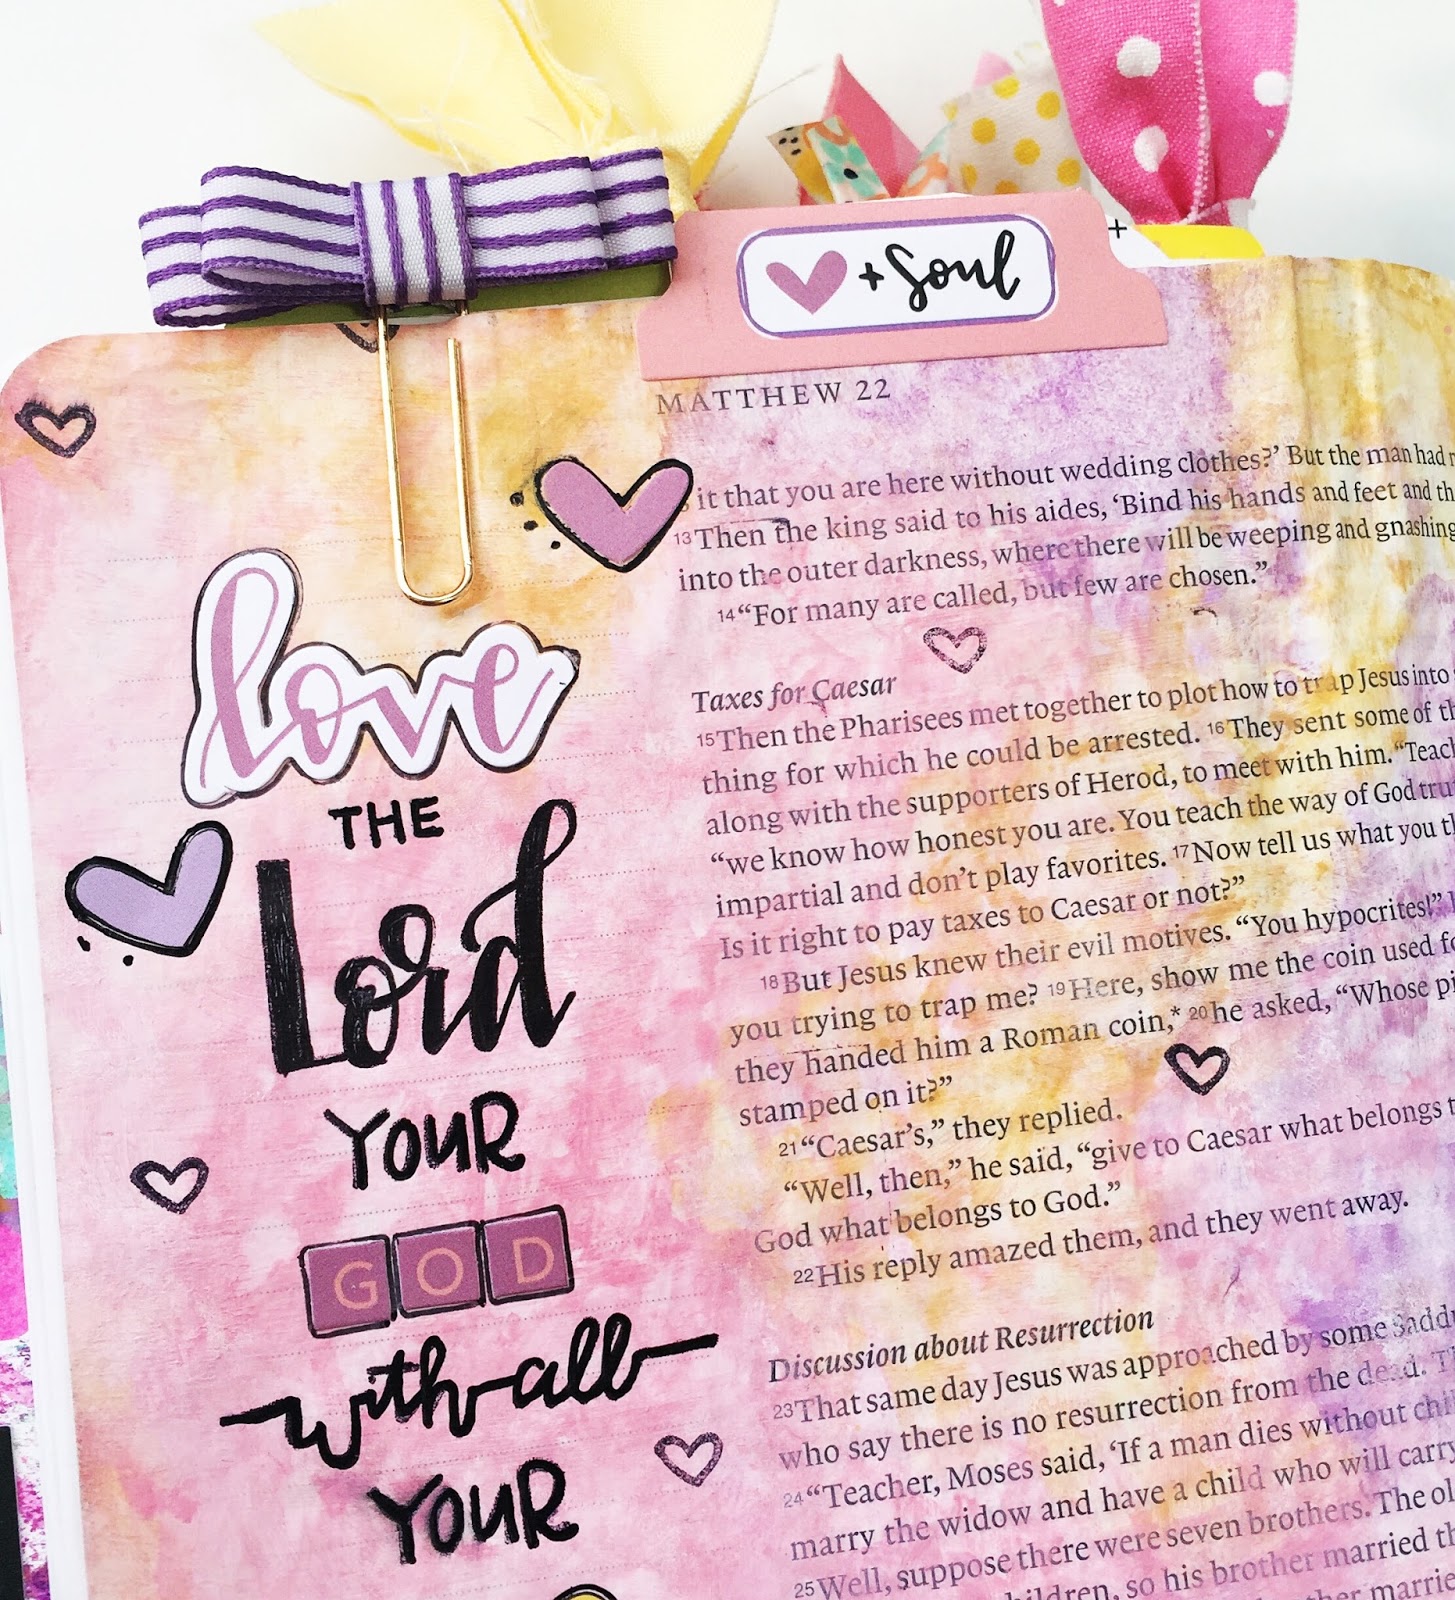 + Soul
MATTHEW 22
it that you are here without wedding clothes?’ But the man had
13Then the king said to his aides, ‘Bind his hands and feet and
into the outer darkness, where there will be weeping and gnashing
14“For many are called, but few are chosen.”
Taxes for Caesar
15Then the Pharisees met together to plot how to trap Jesus into
thing for which he could be arrested. 16They sent some of
along with the supporters of Herod, to meet with him. “Teach
“we know how honest you are. You teach the way of God
impartial and don’t play favorites. 17Now tell us what you
Is it right to pay taxes to Caesar or not?”
18But Jesus knew their evil motives. “You hypocrites!”
you trying to trap me? 19Here, show me the coin used
they handed him a Roman coin,* 20he asked, “Whose
stamped on it?”
21“Caesar’s,” they replied.
“Well, then,” he said, “give to Caesar what belongs
God what belongs to God.”
22His reply amazed them, and they went away.
Discussion about Resurrection
23That same day Jesus was approached by some
who say there is no resurrection from the dead.
24“Teacher, Moses said, ‘If a man dies without
marry the widow and have a child who will carry
25Well, suppose there were seven brothers. The
so his brother married
love
THE
Lord
YOUR
GOD
with all
YOUR